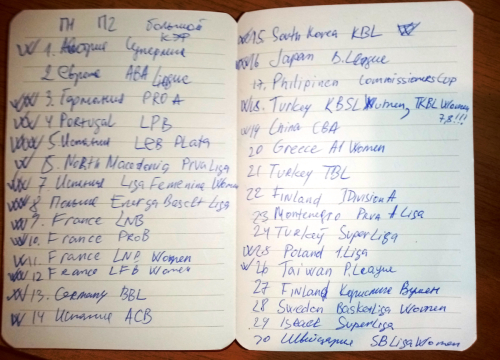 П1 П2 большой
кэф
1. Австрия Суперлига
2 Европа ABA League
3. Германия PRO A
4 Portugal LPB
5 Испания LEB PLata
6. North Macedonia Prva Liga
7 Испания Liga Femenina Women
8 Польша Energa Basket Liga
9. France LNB
10. France PROB
11 France LNB Women
12 France LFB Women
13. Germany BBL
14 Испания ACB
15. South Korea KBL
16 Japan B.League
17. Philipines Commissioners Cup
18. Turkey KBSL Women, TKBL Women
7,8!!!
19 China CBA
20 Greece A1 Women
21 Turkey TBL
22 Finland 1DivisionA
23 Montenegro Prva A Liga
24 Turkey SuperLiga
25 Poland 1.Liga
26 Taiwan P.League
27 Finland Women
28 Sweden BasketLiga Women
29 Israel SuperLiga
30 Швейцария SB Liga Women